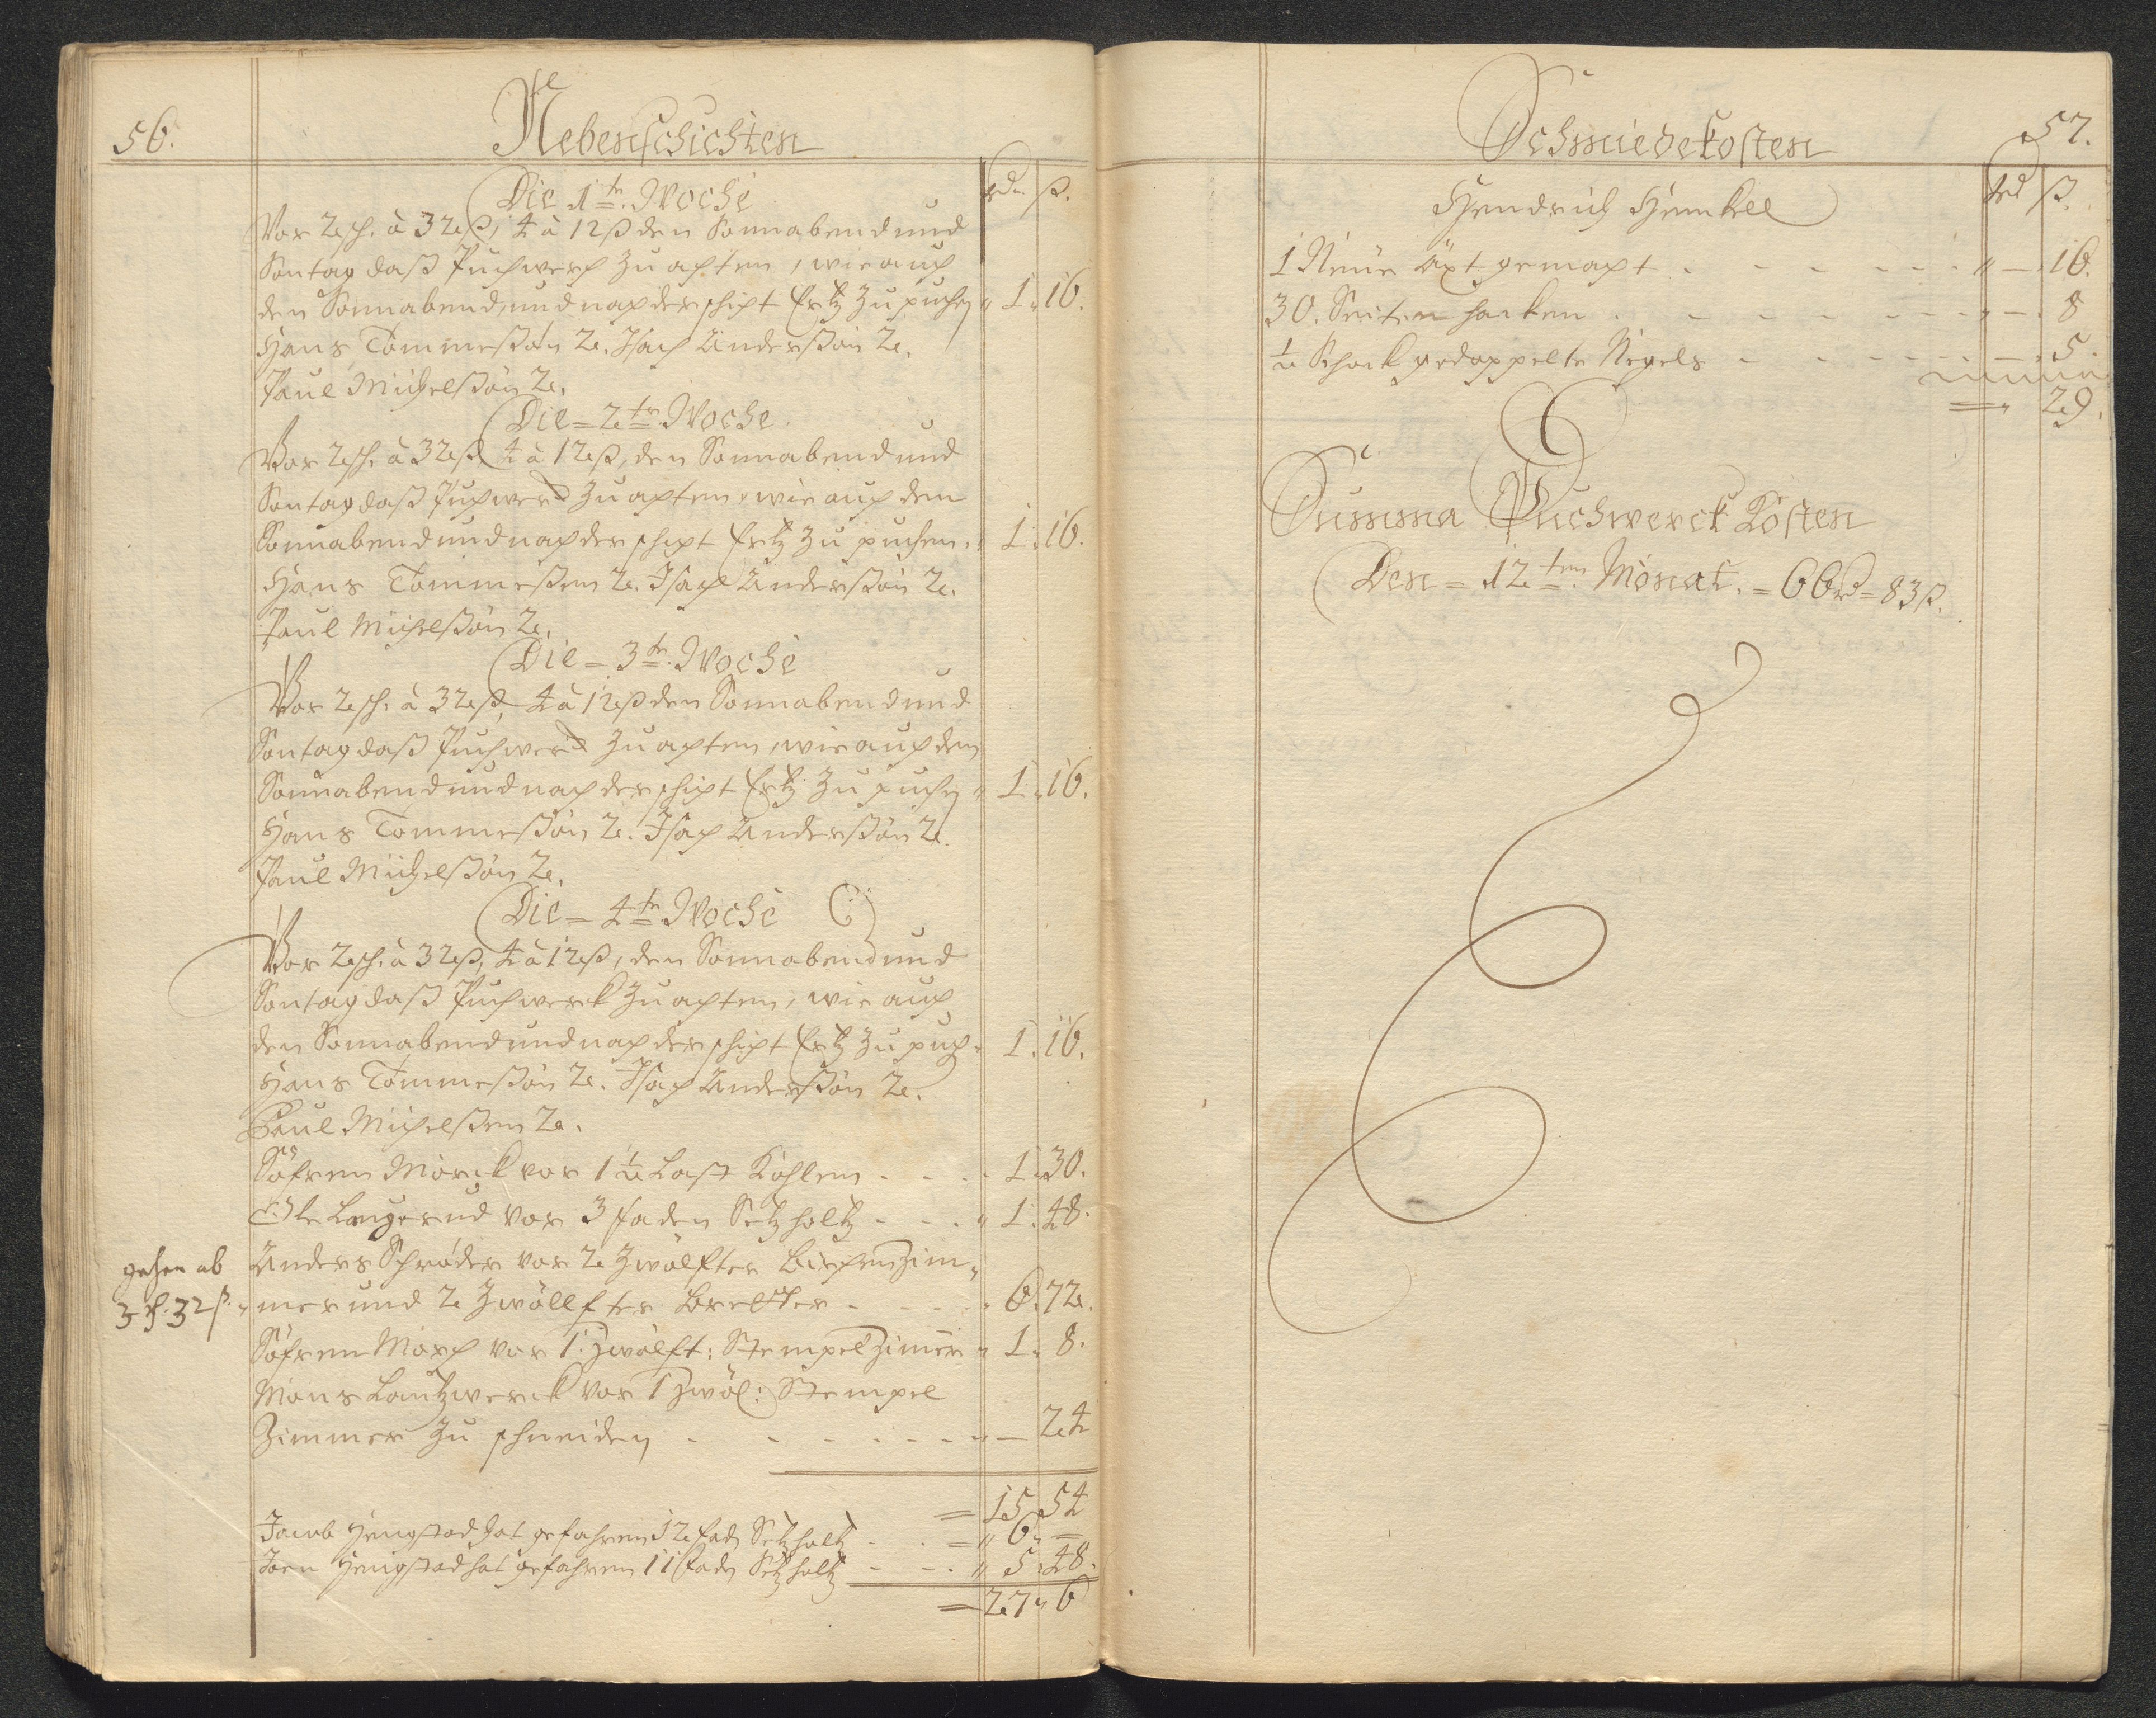 56.
Nebenschichten
rdr. ß.
Die 1te. Woche
Vor 2 sch. à 32ß, 4 à 12ß den Sonnabend und
Sontag daß Puchwerch zu achten, wie auch
den Sonnabend, und nach der schicht Ertz zu puchen " 1. 16.
Hans Tommeßön 2. Isach Anderßön 2.
Paul Michelßön 2.
Die = 2te. Woche
Vor 2 sch. à 32ß 4 à 12ß, den Sonnabend und
Sontag daß Puchwerck zu achten, wie auch den
Sonnabend und nach der schicht Ertz zu puchen. " 1. 16.
Hans Tommeßen 2. Isach Anderßön 2.
Paul Michelßön 2.
Die = 3te. Woche
Vor 2 sch. à 32ß, 4 à 12ß den Sonnabend und
Sontag daß Puchwerck zu achten, wie auch den
Sonnabend und nach der schicht Ertz zu puchen " 1. 16.
Hans Tommeßön 2. Isach Anderßön 2.
Paul Michelßön 2.
Die = 4te. Woche
Vor 2 sch. à 32ß, 4 à 12ß, den Sonnabend und
Sontag daß Puchwerck zu achten, wie auch
den Sonnabend und nach der schicht Ertz zu puch- 1. 16.
Hans Tommeßön 2. Isach Anderßön 2.
Paul Michelßen 2.
Söfren Mörck vor 1 ½ Last Kohlen - - - 1. 30.
Ole Langerud vor 3 faden Setzholtz - - - " 1. 48.
gehen ab Anders Schröder vor 2 Zwölfter zim,,
3 32ß. mer und 2 Zwöllfter Bretter - - - 6. 72.
Söfren Morch vor 1. Zwölft: Stempel Zimer " 1. 8.
Mons Lantzwerck vor 1 Zwöl: Stempel
Zimmer zu schneiden - - - - - - " — 24
= 15. 54
Jacob Hengstad hat gefahren 12 fad Setzholtz - - = " 6. =
Joen Hengstad hat gefahren 11 fad Setzholtz - - - " 5. 48.
= 27 " 6
57.
Schmiedekosten
rd ß.
Hendrich Henckel
1 Neue Äxt gemacht - - - - - - " — 16.
30. Seiten hacken - - - - - - " — 8
½ Schock gedoppelte Negels - - - - - — 5.
= " 29.
Summa Puchwerck Kosten
Den = 12ten. Monat. = 66 rd = 83ß.